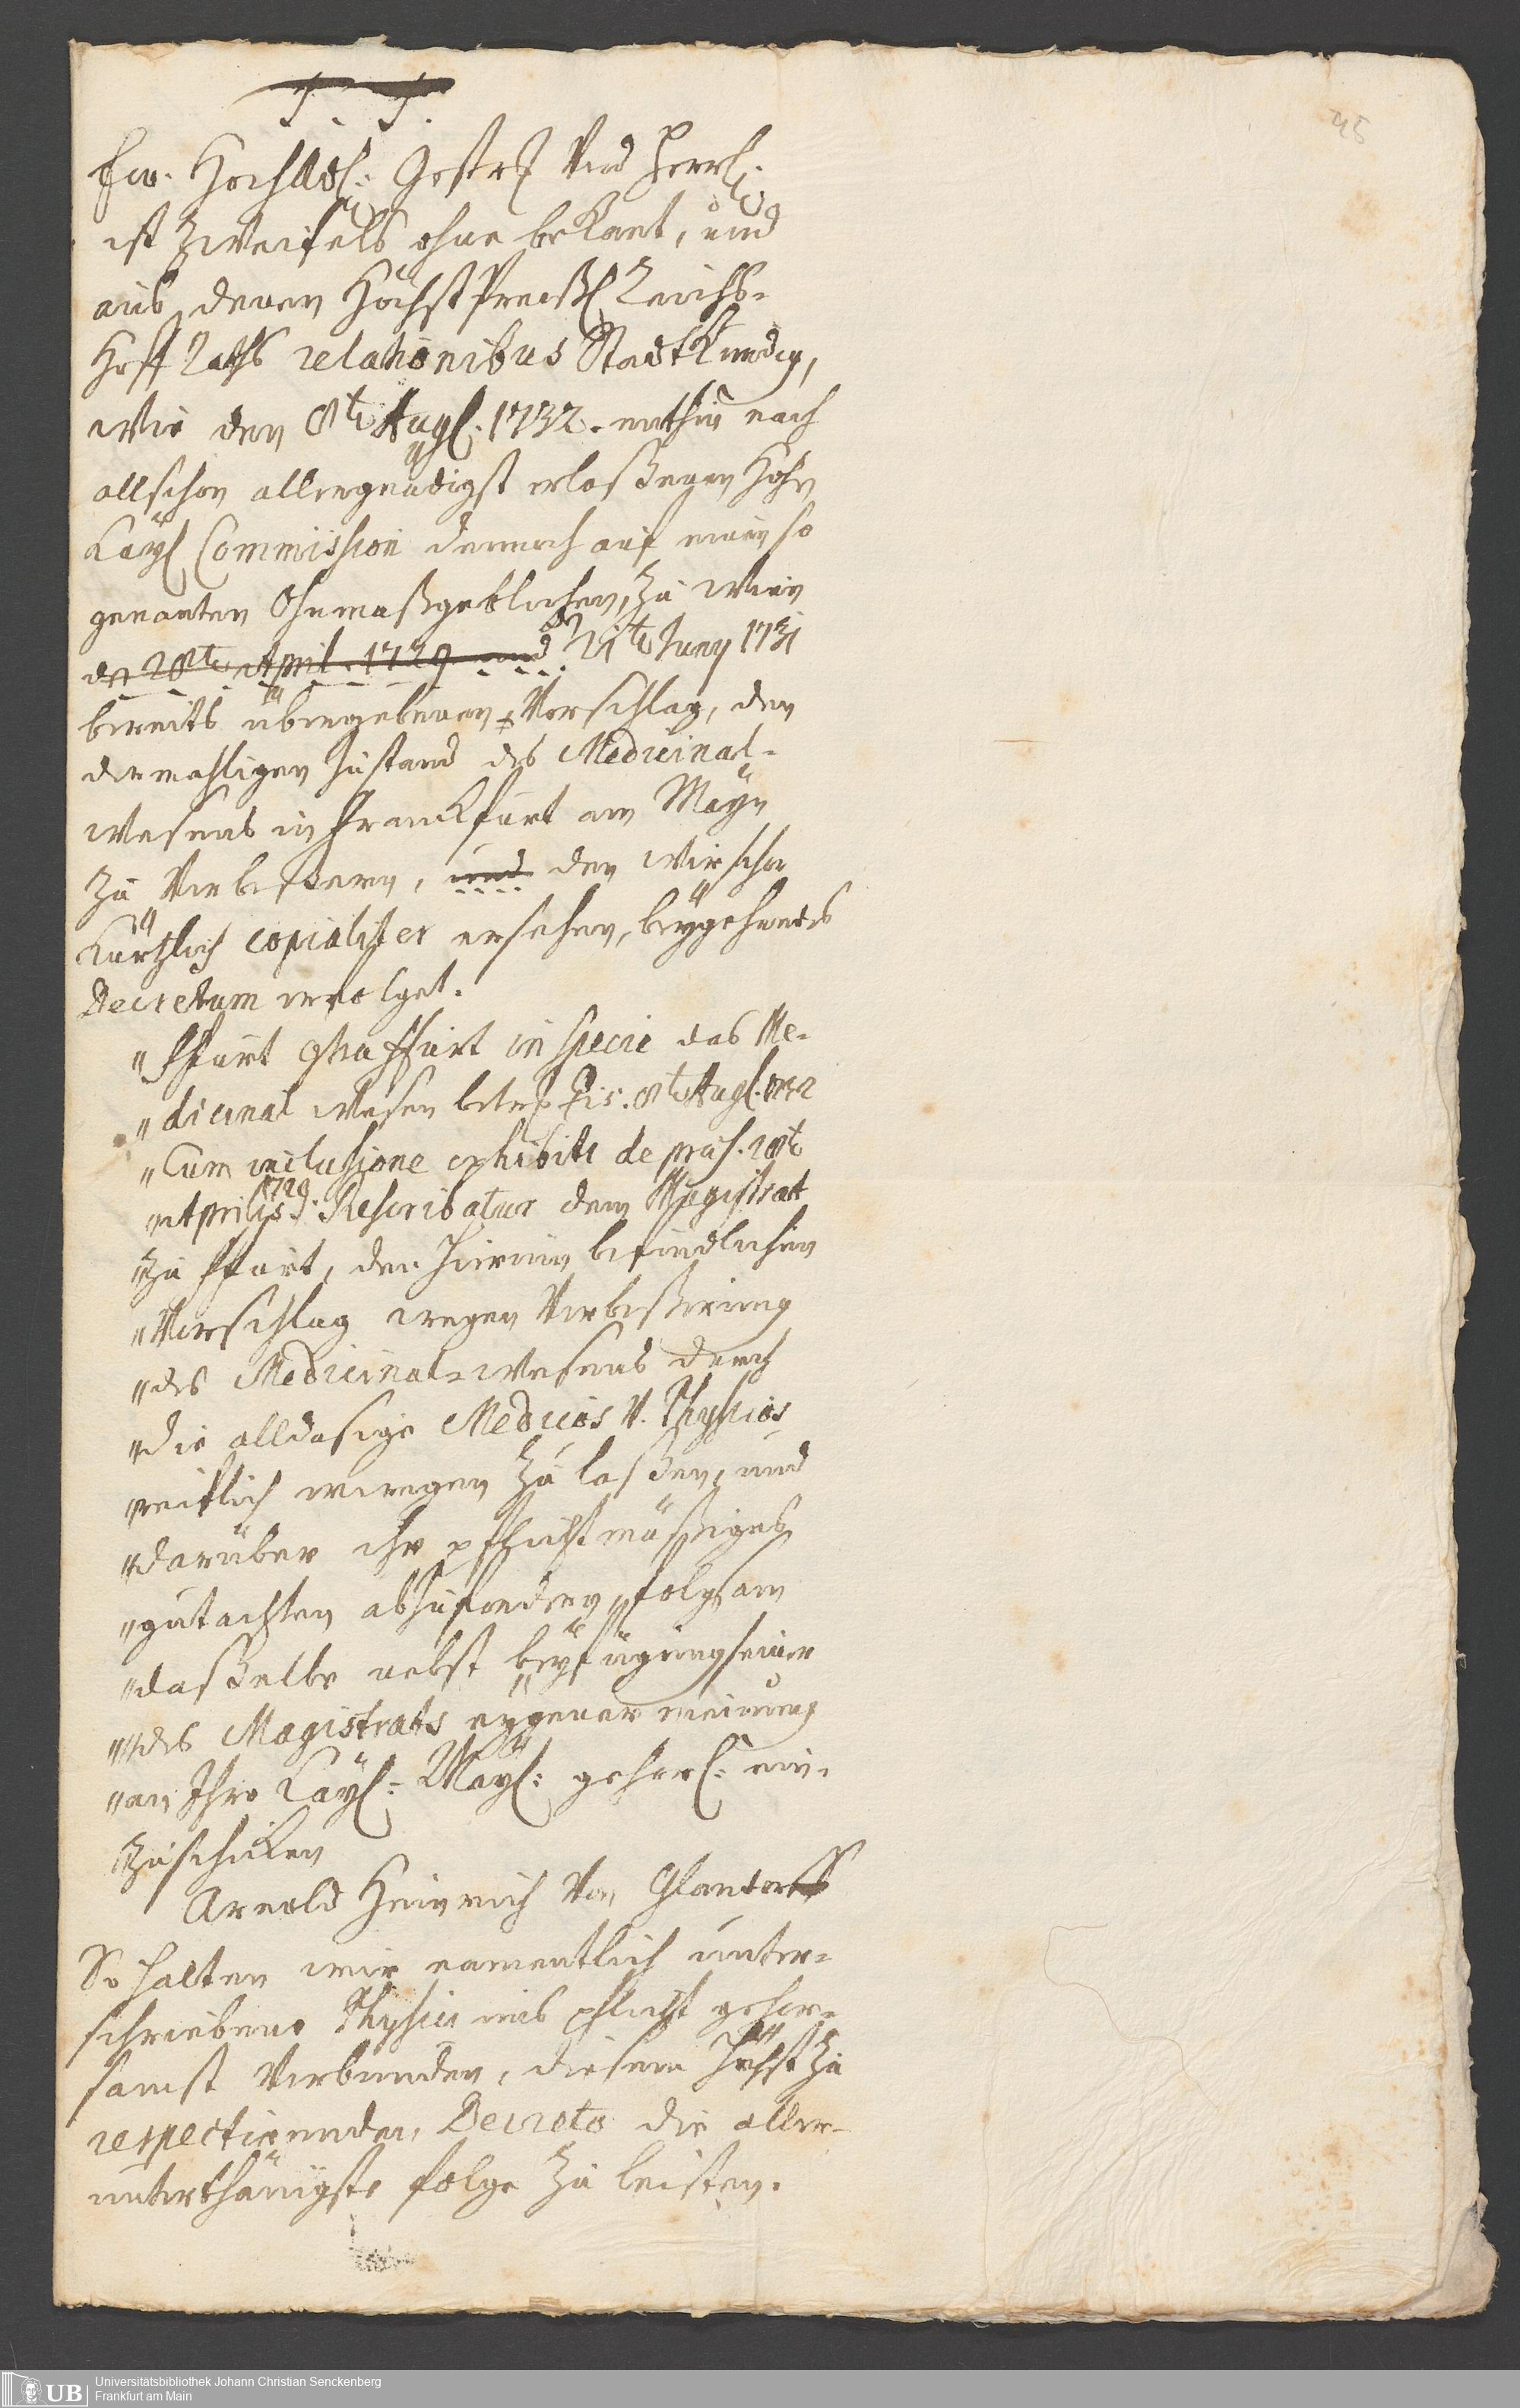 45
Ew. HochAdl: Gestr. Und Herrl:
ist Zweifels ohne bekant, und
aus denen HöchstPreißl Reichs-
Hoff Raths relationibus Stadtkundig,
wie den 8ten Augl. 1732. mithin nach
allschon allergnädigst erlaßenen Hohen
Kayl Commission dennoch auf einen so
genanten Ohnmaßgeblichen, zu Wien
den 28ten April 1729 und den 21ten Juny 1731
bereits übergebenen Vorschlag, den
dermahligen zustand des Medicinal-
wesens in Franckfurt am Mayn
zu Verbeßern, und den wir schon
kürtzlich copialiter ersehen, beygehendes
Decretum erfolget.
"Ffurt contra Ffurt in specie das Me-
"dicinal wesen betrf. 8ten Augl. 1732
"Cum inclusione exhibiti de præs. 28ten
"Aprilis 1729. Rescribatur dem Magistrat
"zu Ffurt, den hierinn befindlichen
"Vorschlag wegen Verbeßerung
"des Medicinal-wesens durch
"die alldasige Medicos u. Physicos
"reiflich erwegen zu laßen, und
"darüber ihr pflichtmäßiges
"gutachten abzufordern, folgsam
"daßelbe nebst beyfügung seiner
"des Magistrats eygener meinung
"an Ihro Kayl: Mayl: gehorl: ein-
"zuschicken
Arnold Heinrich Von Glandorff
So halten wir namentlich unter-
schriebene Physici uns pflicht gehor-
samst Verbunden, diesem Höchst zu
respectirenden Decreto die aller-
unterthänigste folge zu leisten.
UB
Universitätsbibliothek Johann Christian Senckenberg
Frankfurt am Main